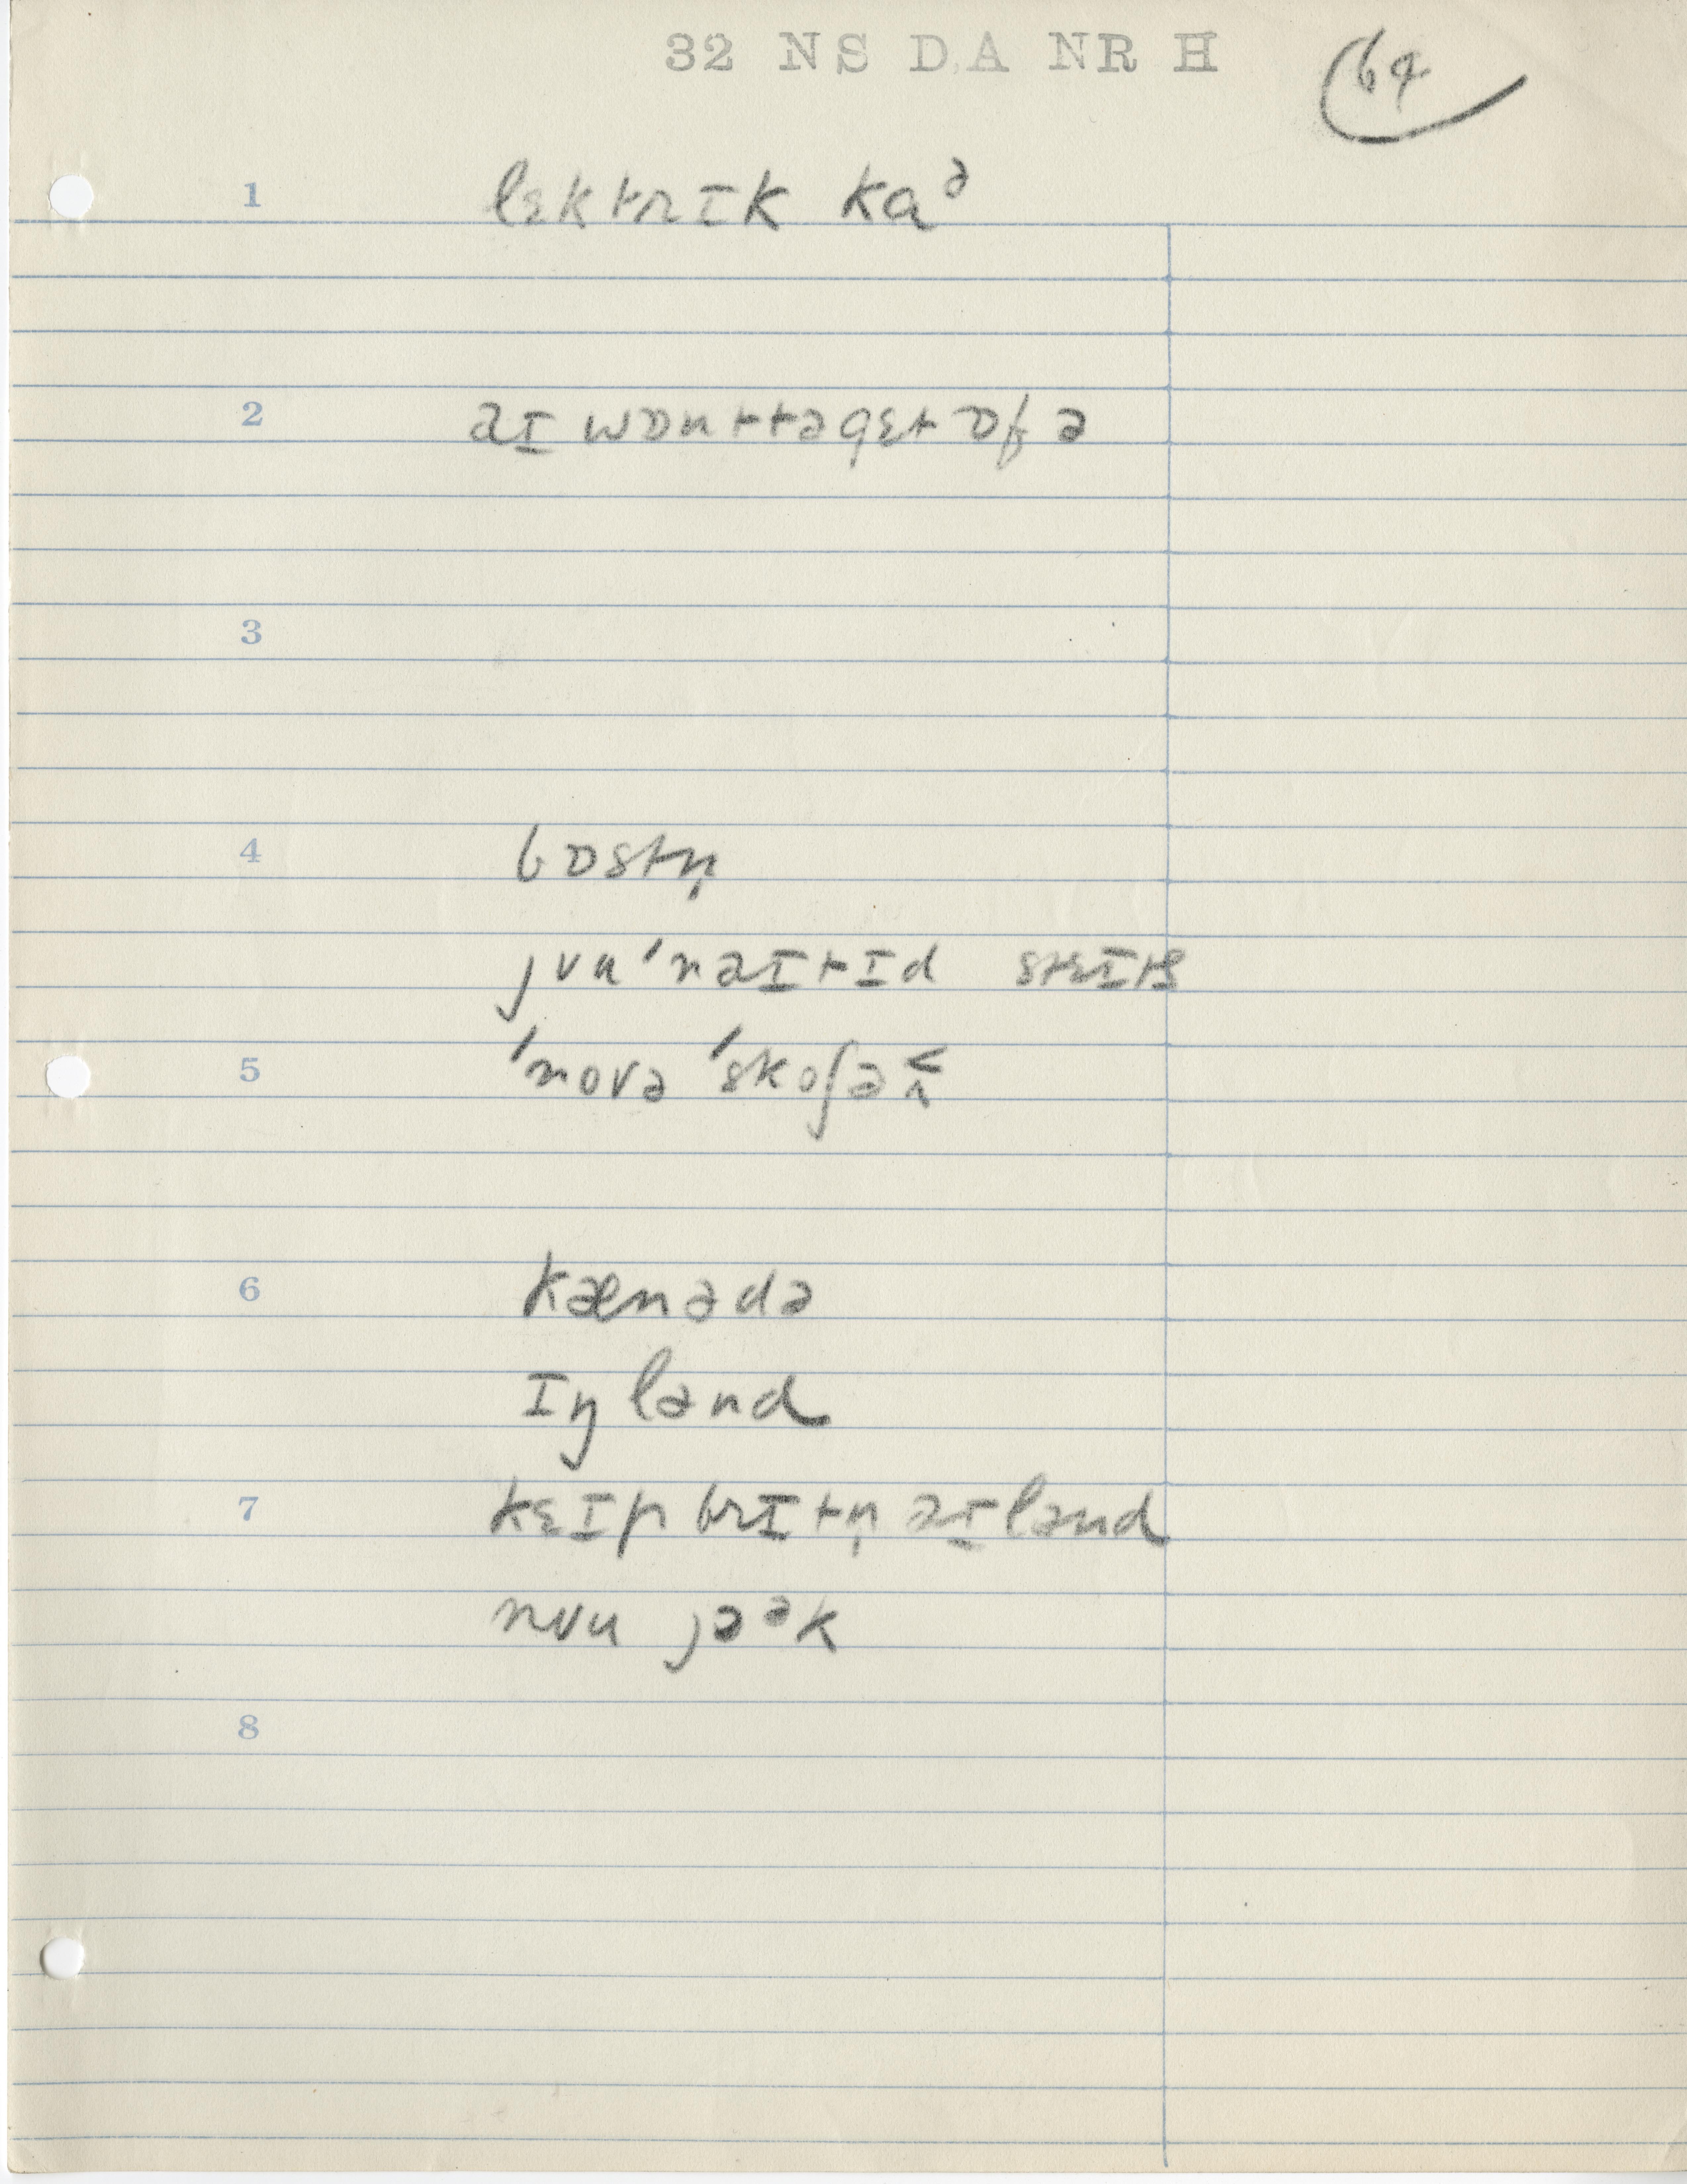 32 NS DA NR H
64
1 lɛktrɪk kaᵊ
2 aɪ wɒnttəgɛt ɒf ə
3
4 bɒstn̩
jʊu'naɪtɪd stɛɪts
5 'novə 'skoʃə
6 kænədə
ɪŋlənd
7 kɛɪp brɪtn̩ aɪlənd
nʊu jɔᵊk
8